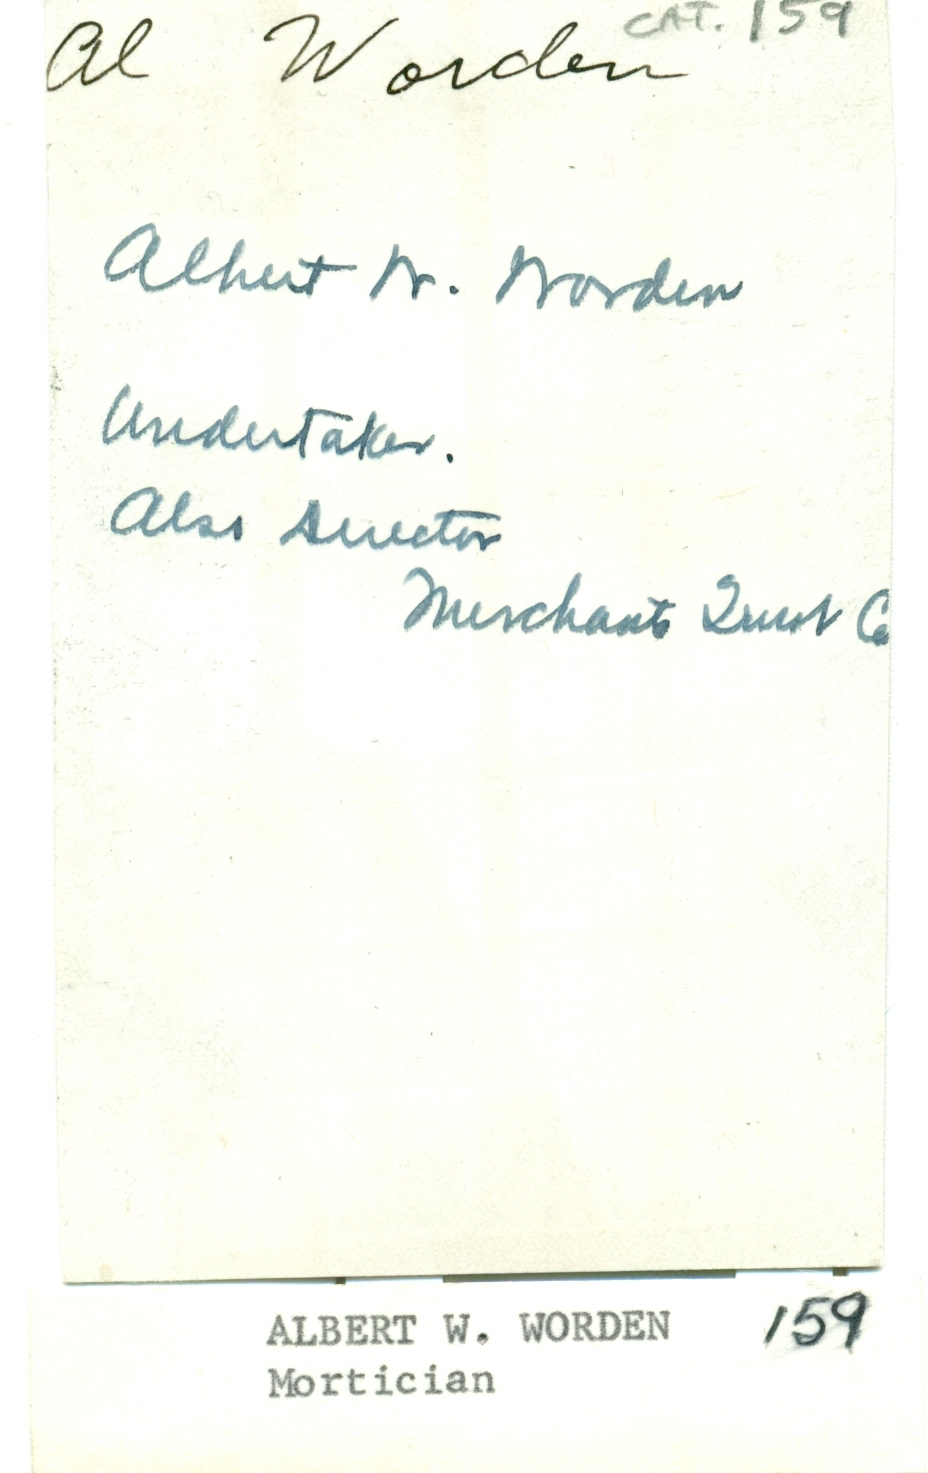 CAT. 159
Al Worden
Albert W. Worden
Undertaker.
Also Director
Merchants Trust Co
ALBERT W. WORDEN 159
Mortician